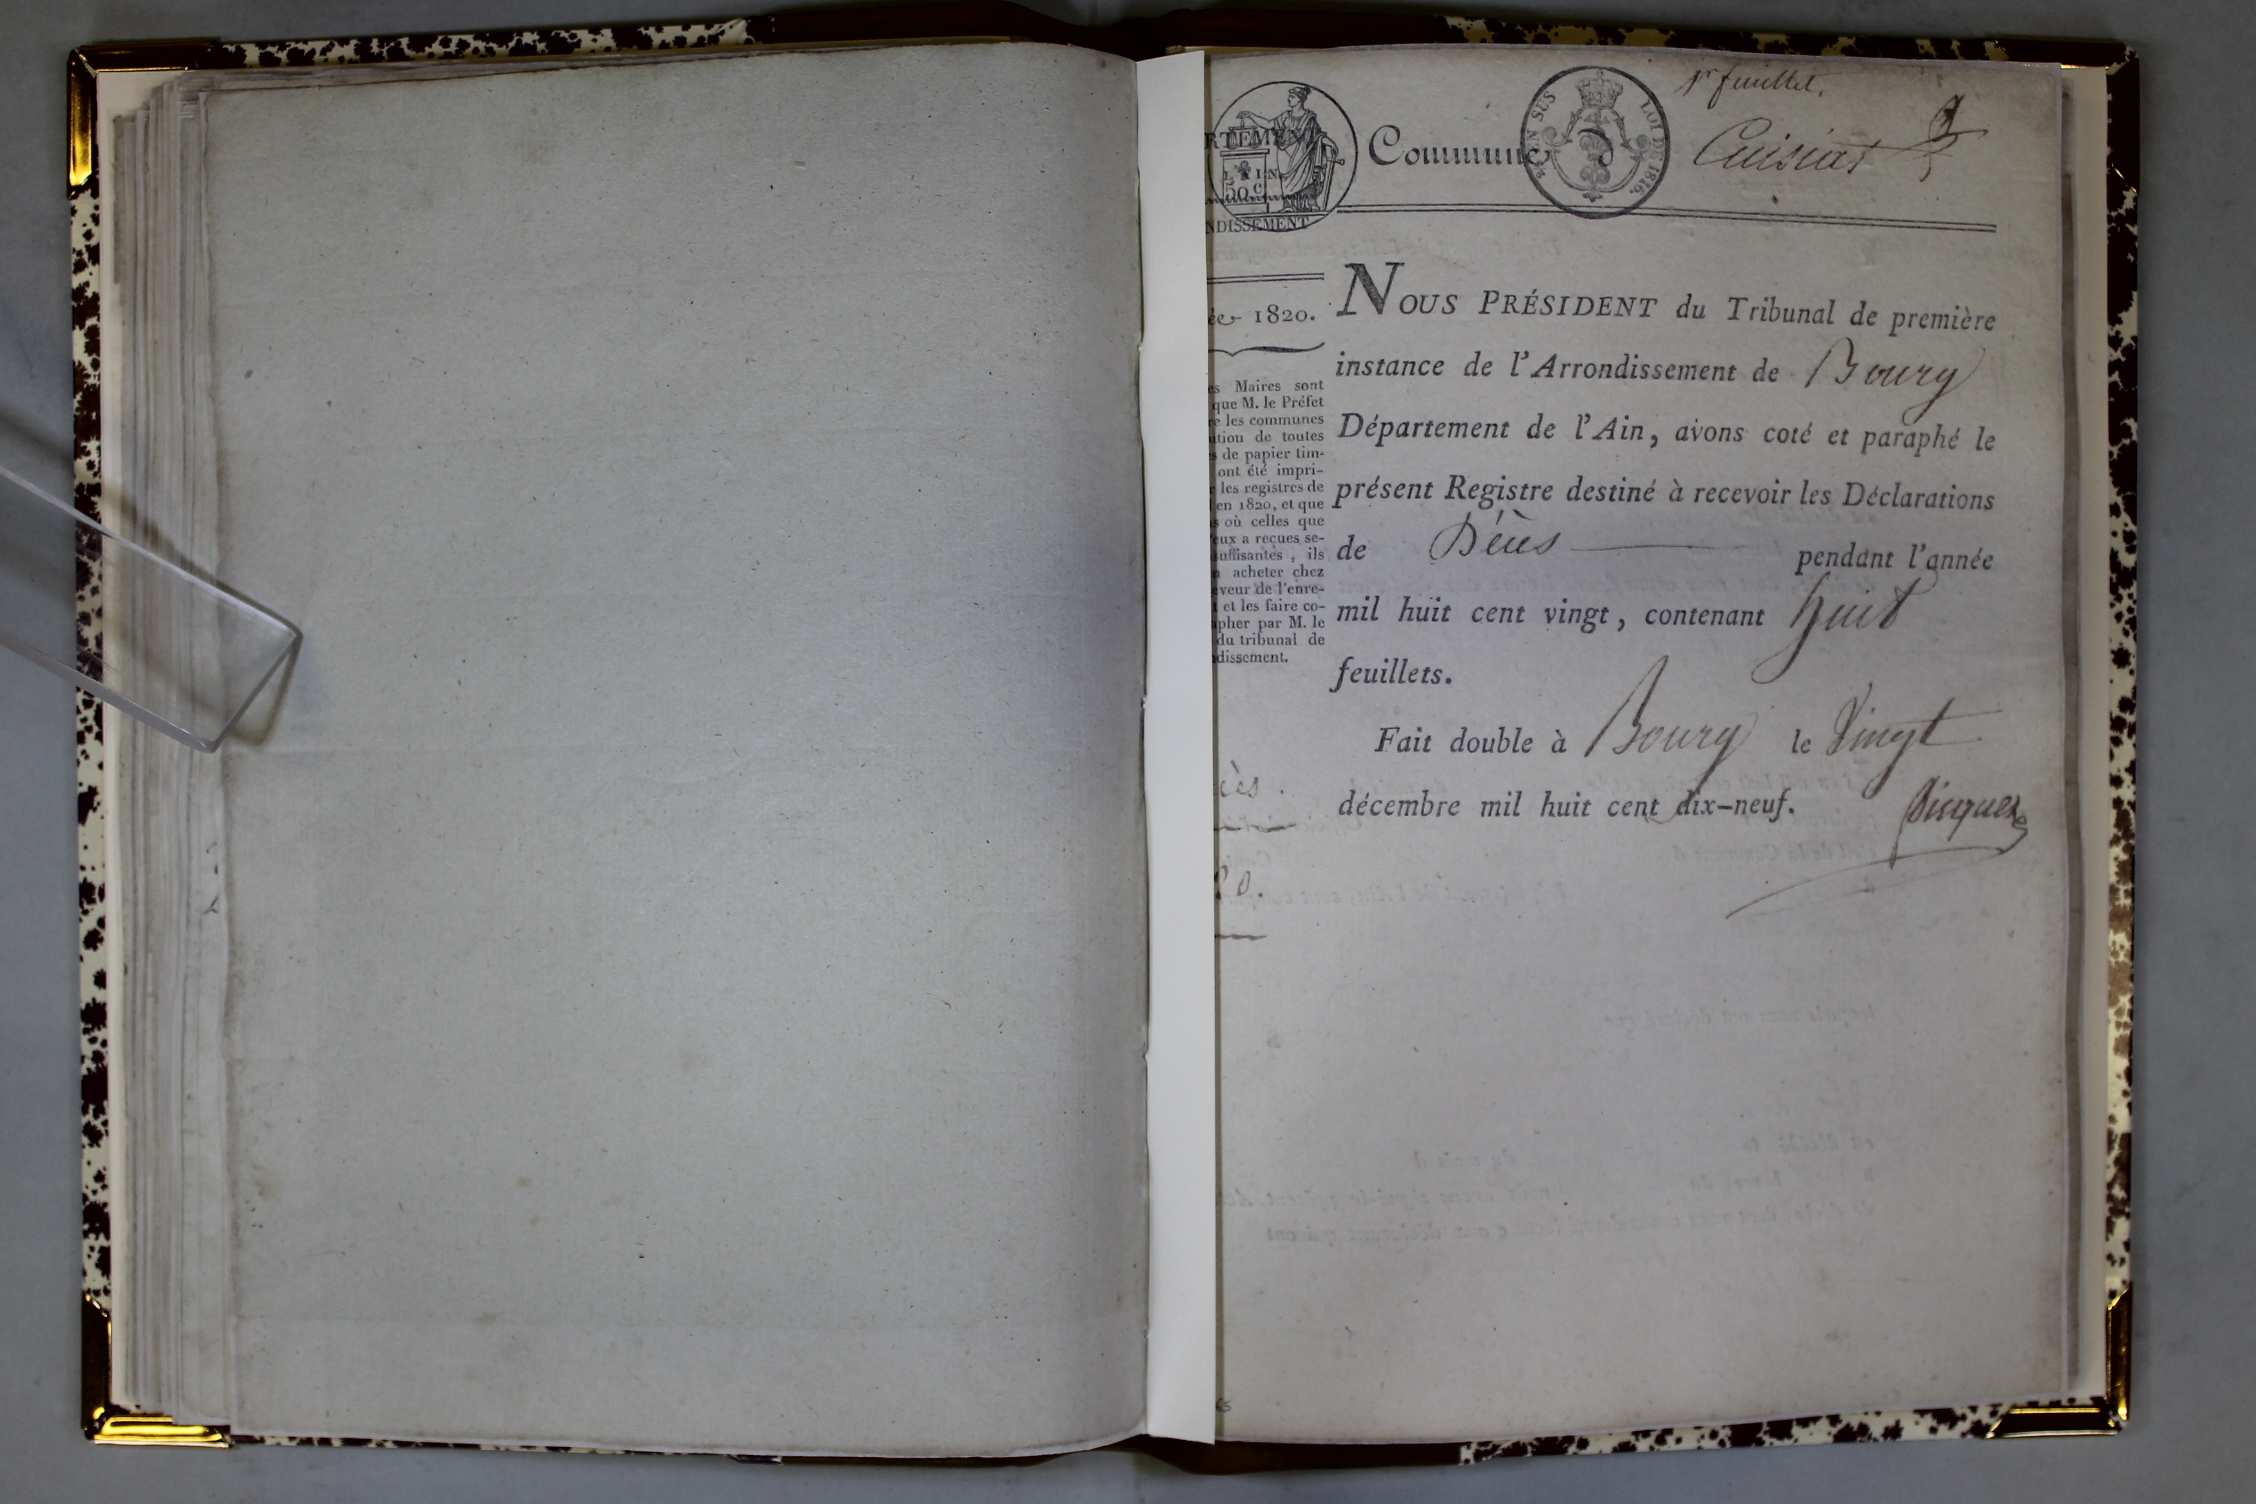 1r feuillet.
RTEMEN
Commune
Cuisiat
EN SUS
LOI DE 1816.
L'AIN
50 C
NDISSEMENT
ée 1820.
es Maires sont
que M. le Préfet
re les communes
ution de toutes
s de papier tim-
ont été impri-
r les registres de
en 1820, et que
s où celles que
eux a reçues se-
suffisantes, ils
n acheter chez
eveur de l'enre-
t et les faire co-
apher par M. le
du tribunal de
ndissement.
ès.
20.
NOUS PRÉSIDENT du Tribunal de première
instance de l'Arrondissement de Bourg
Département de l'Ain, avons coté et paraphé le
présent Registre destiné à recevoir les Déclarations
de Décès pendant l'année
mil huit cent vingt, contenant huit
feuillets.
Fait double à Bourg le Vingt
décembre mil huit cent dix-neuf.